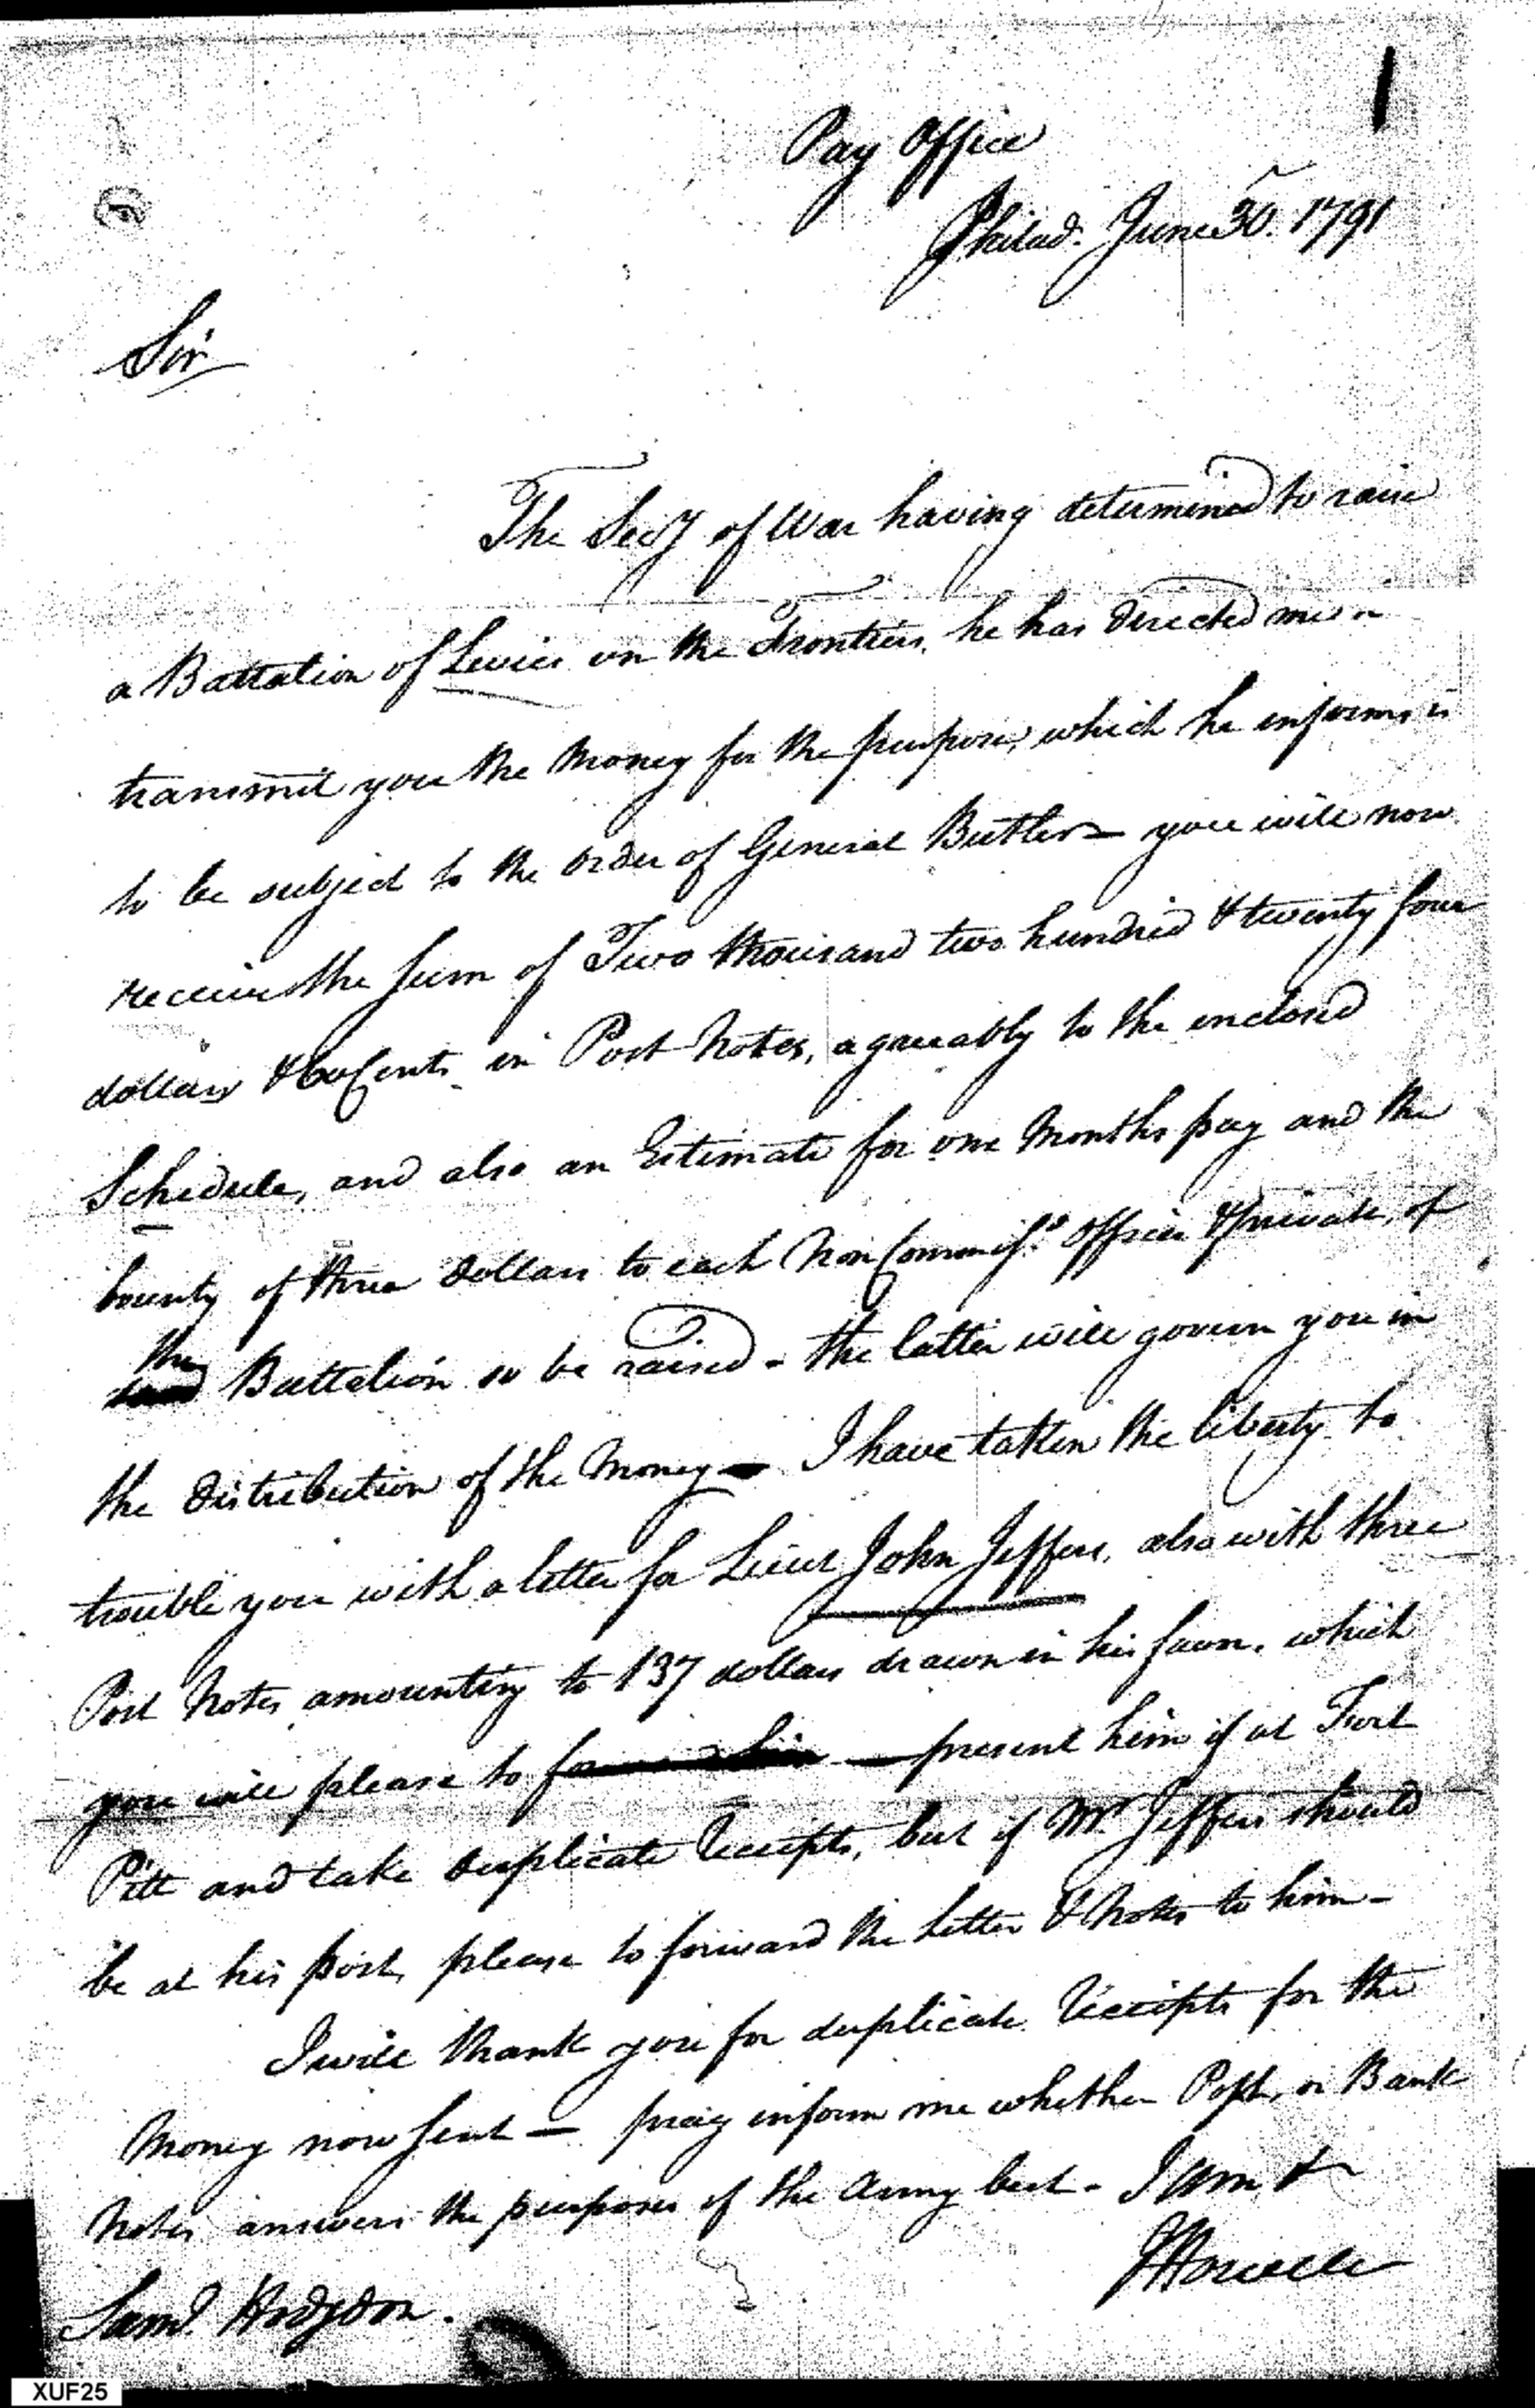 Pay Office
Philad. June 30. 1791
Sir
The Secy of War having determined to raise
a Battalion of Levies on the Frontiers, he has directed me to
transmit you the Money for the purpose, which he informs is
to be subject to the order of General Butler — you will now
receive the sum of Two thousand two hundred & twenty four
dollars & Cents in Post Notes, agreeably to the enclosed
Schedule, and also an Estimate for one Months pay and the
bounty of three dollars to each Non Commissd. Officer & private, of
the
Battalion so be raised - the latter will govern you in
the distribution of the Money — I have taken the liberty to
trouble you with a letter for Lieut John Jeffers, also with three
Post Notes amounting to 137 dollars drawn in his favor, which
you will please to — present him if at Fort
Pitt and take duplicate Receipts, but if Mr. Jeffers should
be at his post, please to forward the letter & Notes to him -
I will thank you for duplicate Receipts for the
Money now sent — pray inform me whether Post, or Bank
Notes answers the purposes of the Army best - I am &
J Howell
Saml. Hodgdon.
XUF25